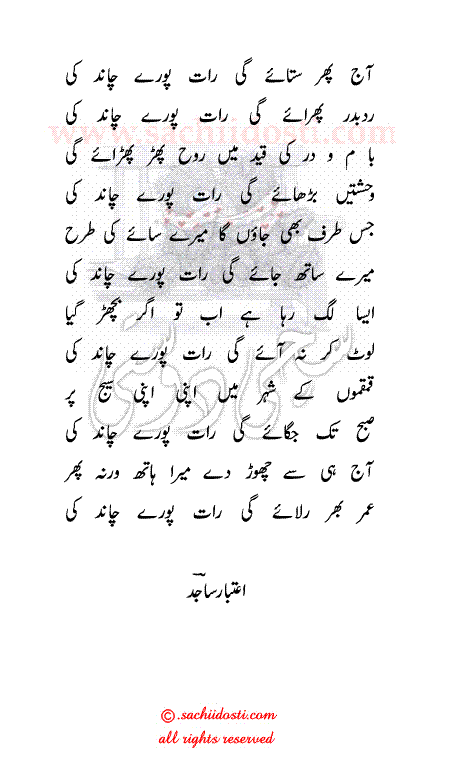 آج پھر ستائے گی رات پورے چاند کی
ردبدر پھرائے گی رات پورے چاند کی
www.sachiidosti.com
با م و در کی قید میں روح پھڑ پھڑائے گی
وحشتیں بڑھائے گی رات پورے چاند کی
جس طرف بھی جاؤں گا میرے سائے کی طرح
میرے ساتھ جائے گی رات پورے چاند کی
ایسا لگ رہا ہے اب تو اگر بچھڑ گیا
لوٹ کر نہ آئے گی رات پورے چاند کی
سچی دوستی
قمقموں کے شہر میں اپنی اپنی سیج پر
صبح تک جگائے گی رات پورے چاند کی
آج ہی سے چھوڑ دے میرا ہاتھ ورنہ پھر
عمر بھر رلائے گی رات پورے چاند کی
اعتبار ساجد
©.sachiidosti.com
all rights reserved